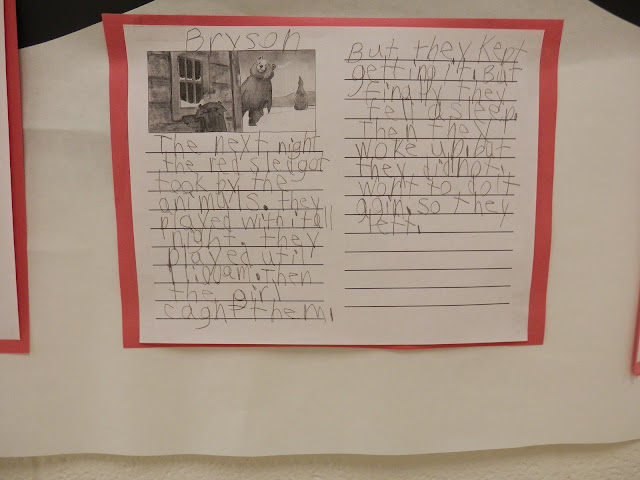 Bryson
The next night
the red sled got
took by the
animals. they
played with it all
night. they
played util
11:00am. Then
the girl
caght them.
But they kept
getting it. But
finally they
fell asleep.
Then they
woke up. But
they did not
wont to do it
agin. so they
left.